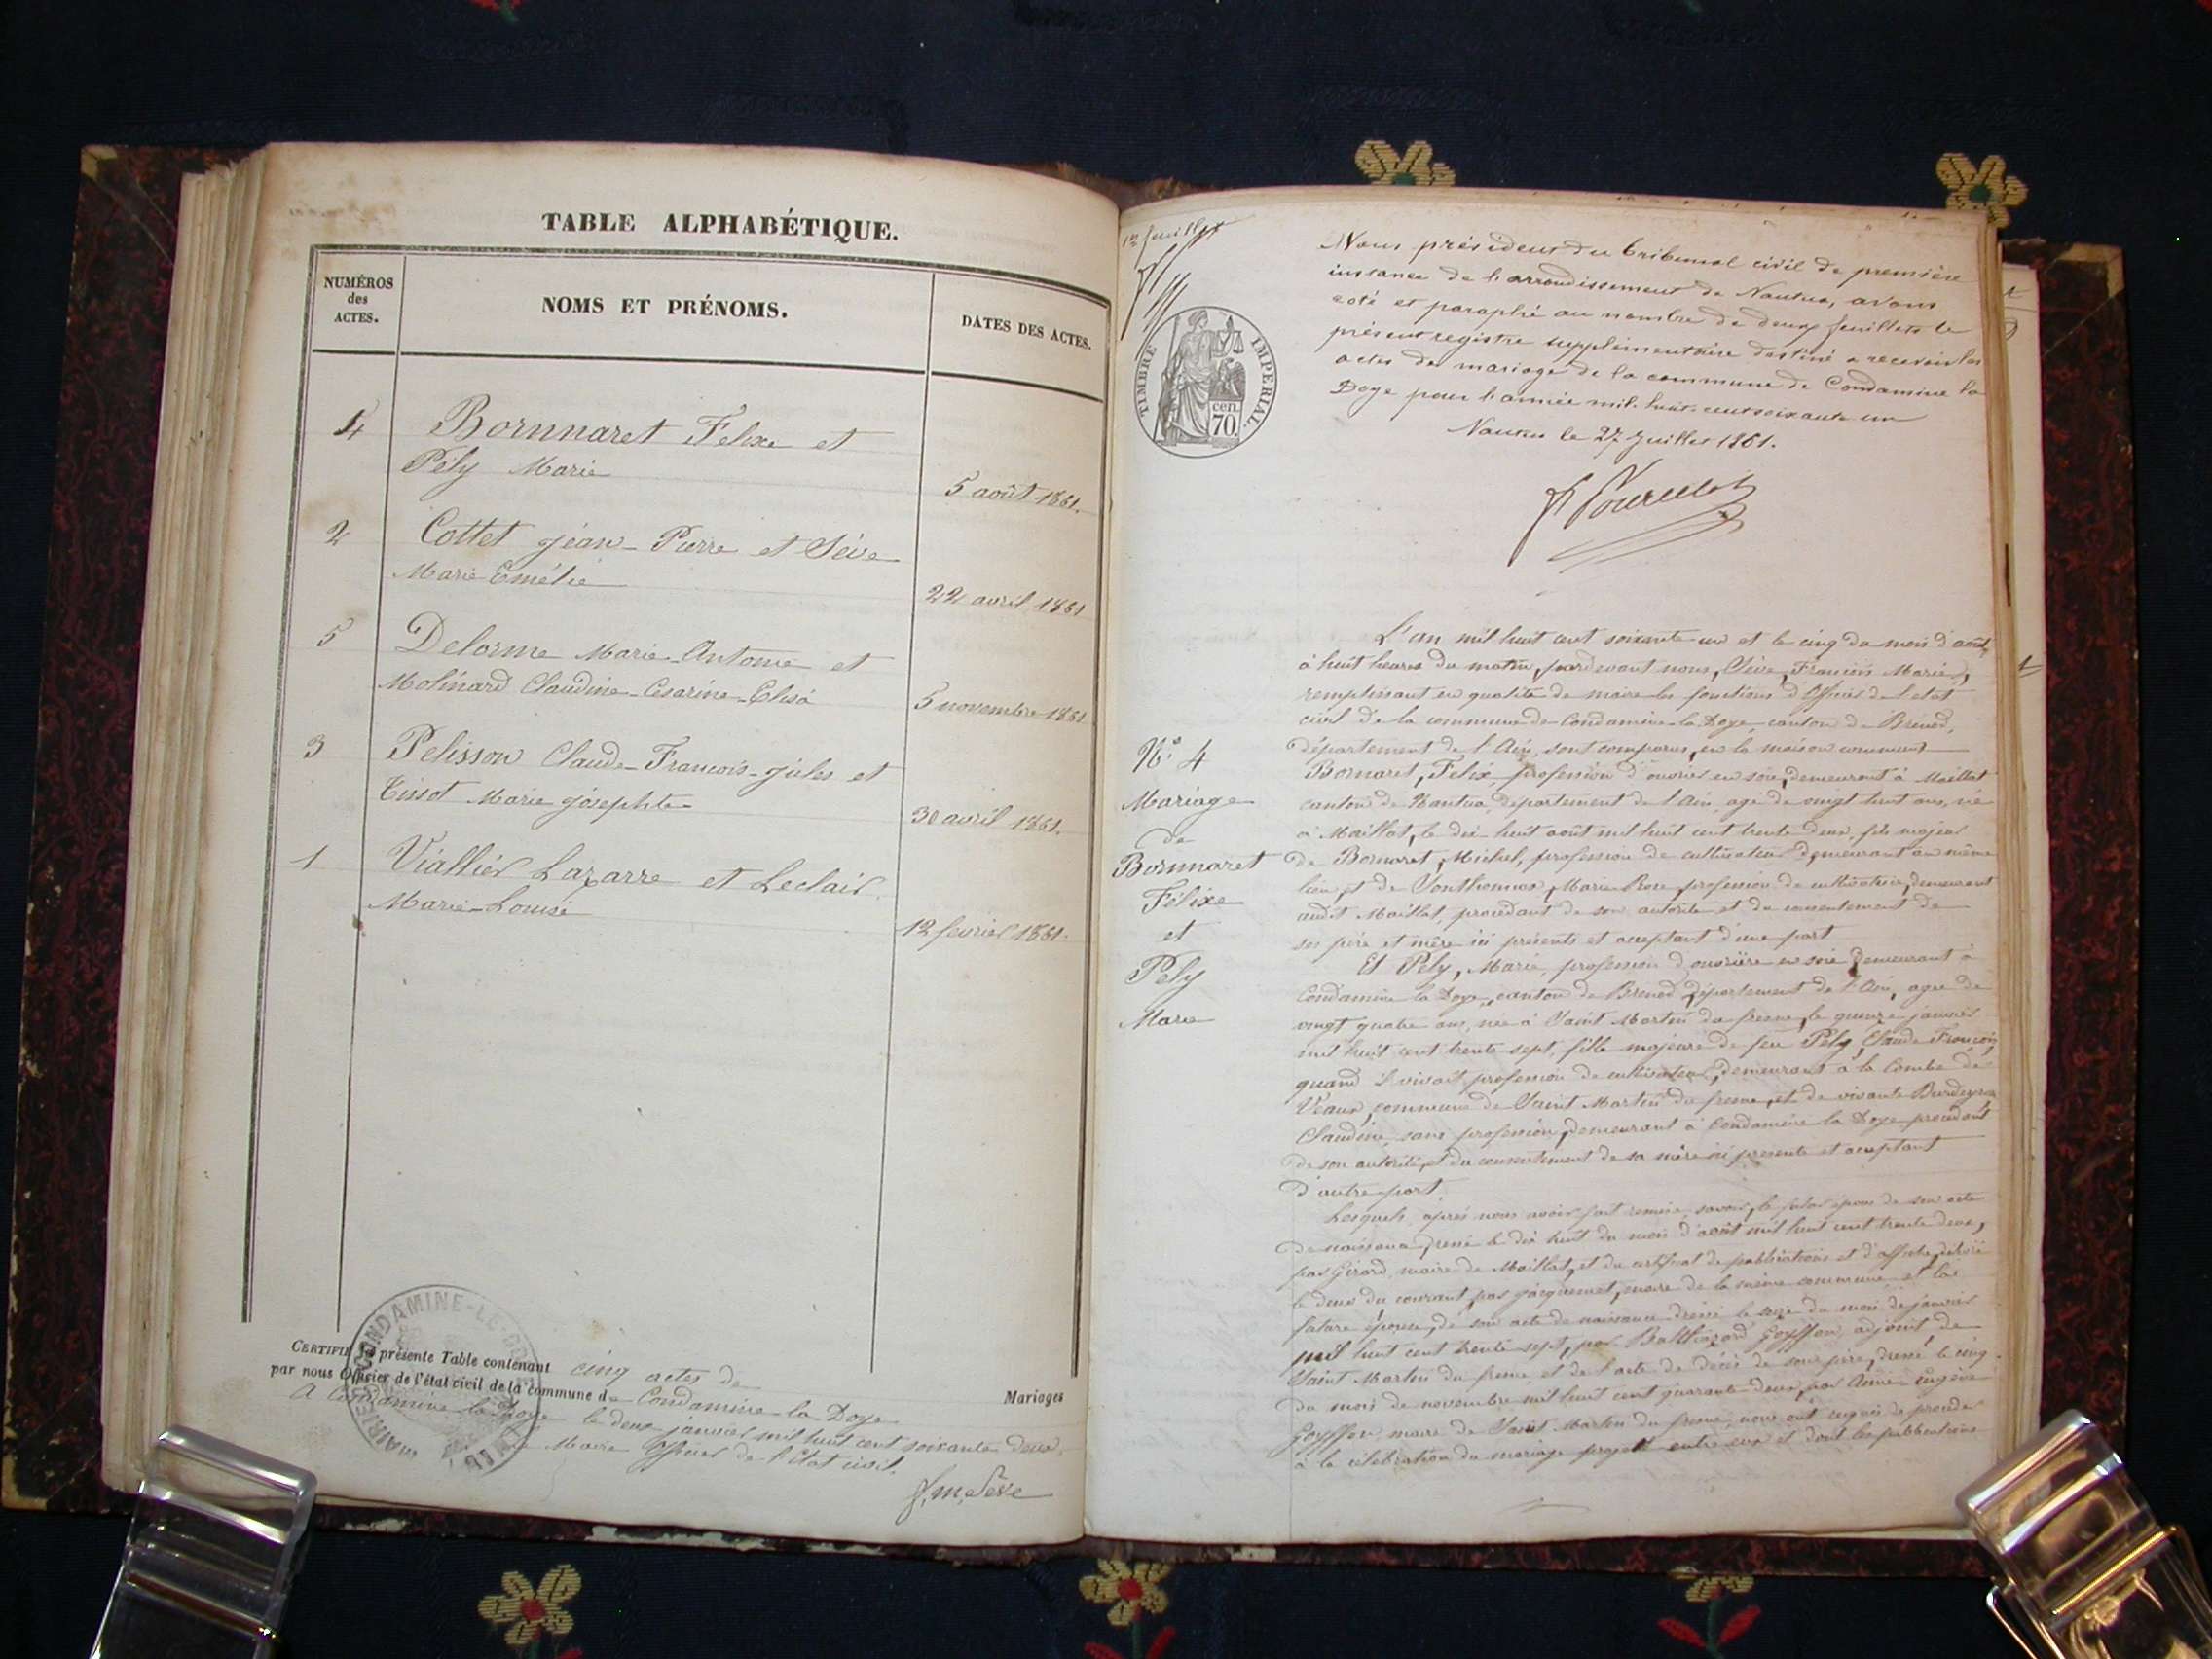 TABLE ALPHABÉTIQUE.
NUMÉROS
des
ACTES.
NOMS ET PRÉNOMS.
DATES DES ACTES.
4 Bornnaret Felixe et
Pély Marie
5 août 1861.
2 Cottet jéan-Pierre et Sève
Marie Emélie
22 avril 1861
5 Delorme Marie-Antome et
Molinard Claudine-Cesarine-Elisa
5 novembre 1861
3 Pelisson Claude-Francois-jules et
Tissot Marie josephte
30 avril 1861.
1 Viallier Lazarre et Leclair
Marie-Louise
12 fevrier 1861.
CERTIFIE la présente Table contenant cinq actes de Mariages
par nous Officier de l'état civil de la commune de Condamine la Doye
A Condamine la Doye le deux janvier mil huit cent soixante deux,
Le Maire Officier de l'état civil.
f. m. Sève
MAIRIE CONDAMINE-LE-DOYE
1er feuillet
TIMBRE IMPERIAL.
70. cen.
Nous président du tribunal civil de première
instance de l'arrondissement de Nantua, avons
coté et paraphé au nombre de deux feuillets le
présent registre supplémentaire destiné a recevoir les
actes de mariage de la commune de Condamine la
Doye pour l'année mil huit cent soixante un
Nantua le 27 Juillet 1861.
N° 4
Mariage
de
Bornnaret
Félixe
et
Pely
Marie
L'an mil huit cent soixante un et le cinq du mois d'août,
à huit heures du matin, pardevant nous, Sève, François Marie,
remplissant en qualité de maire les fonctions d'Officier de l'etat
civil de la commune de Condamine la Doye canton de Brénod,
département de l'Ain, sont comparus, en la maison commune
Bornaret, Felix, profession d'ouvrier en soie, demeurant à Maillat
canton de Nantua, département de l'Ain, agé de vingt huit ans, né
à Maillat, le dix huit août mil huit cent trente deux, fils majeur
de Bornaret, Michel, profession de cultivateur demeurant au même
lieu, et de Marie Rose, profession de cultivatrice, demeurant
audit Maillat, procédant de son autorité et du consentement de
ses père et mère ici présents et acceptant d'une part
Et Pely, Marie, profession d'ouvrière en soie demeurant à
Condamine la Doye, canton de Brenod, département de l'Ain, agée de
vingt quatre ans, née à Saint Martin du fresne, le quinze janvier
mil huit cent trente sept, fille majeure de feu Pely, Claude François,
quand il vivait profession de cultivateur, demeurant à la Combe de
Veaux, commune de Saint Martin du fresne, et de vivante
Claudine, sans profession, demeurant à Condamine la Doye procédant
de son autorité, et du consentement de sa mère ici présente et acceptant
d'autre part.
Lesquels, après nous avoir fait remise, savoir, le futur époux de son acte
de naissance, dressé le dix huit du mois d'août mil huit cent trente deux,
par Girard, maire de Maillat, et du certificat de publications et d'affiche, délivré
le deux du courant, par jacquemet, maire de la même commune, et la
future épouse, de son acte de naissance dressé le seize du mois de janvier
mil huit cent trente sept, par Balthazard Goyffon, adjoint de
Saint Martin du fresne, et de l'acte de décès de son père, dressé le cinq
du mois de novembre mil huit cent quarante deux, par Aimé eugène
Goyffon, maire de Saint Martin du fresne, nous ont requis de procéder
à la célébration du mariage projeté entre eux et dont les publications